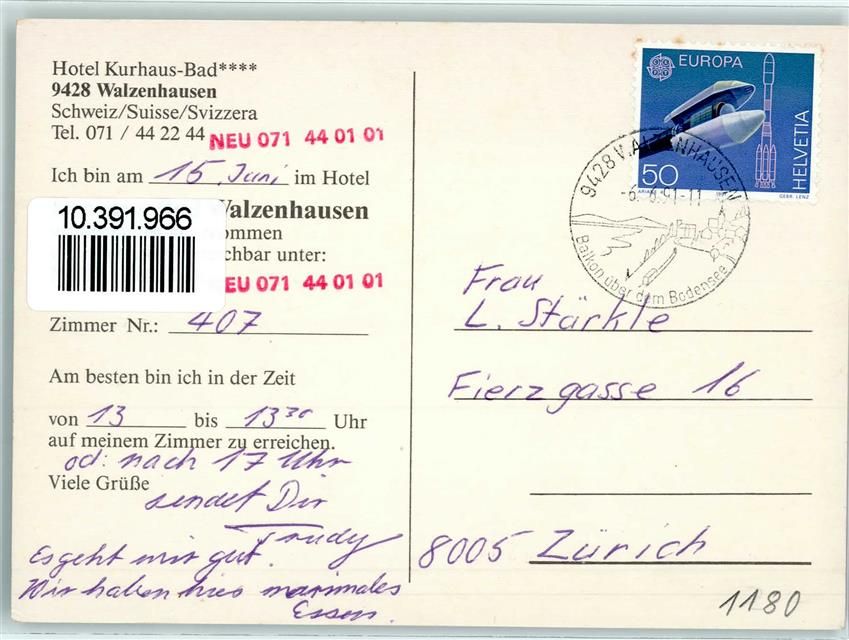 Hotel Kurhaus-Bad****
9428 Walzenhausen
Schweiz/Suisse/Svizzera
Tel. 071 / 44 22 44 NEU 071 44 01 01
Ich bin am 15. Juni im Hotel
Walzenhausen
10.391.966
ommen
chbar unter:
EU 071 44 01 01
Zimmer Nr.: 407
Am besten bin ich in der Zeit
von 13 bis 13 30 Uhr
auf meinem Zimmer zu erreichen.
od: nach 17 Uhr
Viele Grüße
sendet Dir
Trudy
Es geht mir gut.
Wir haben hier maximales
Essen.
EUROPA
HELVETIA
50
GEBR. LENZ
9428 WALZENHAUSEN
-6.-6.91-11
Balkon über dem Bodensee
Frau
L. Stärkle
Fierzgasse 16
8005 Zürich
1180